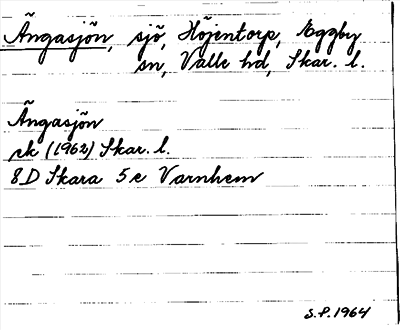 Ängasjön, sjö, Höjentorp, Eggby
sn, Valle hd, Skar. l.
Ängasjön
ek (1962) Skar. l.
8D Skara 5e Varnhem
S.P. 1964